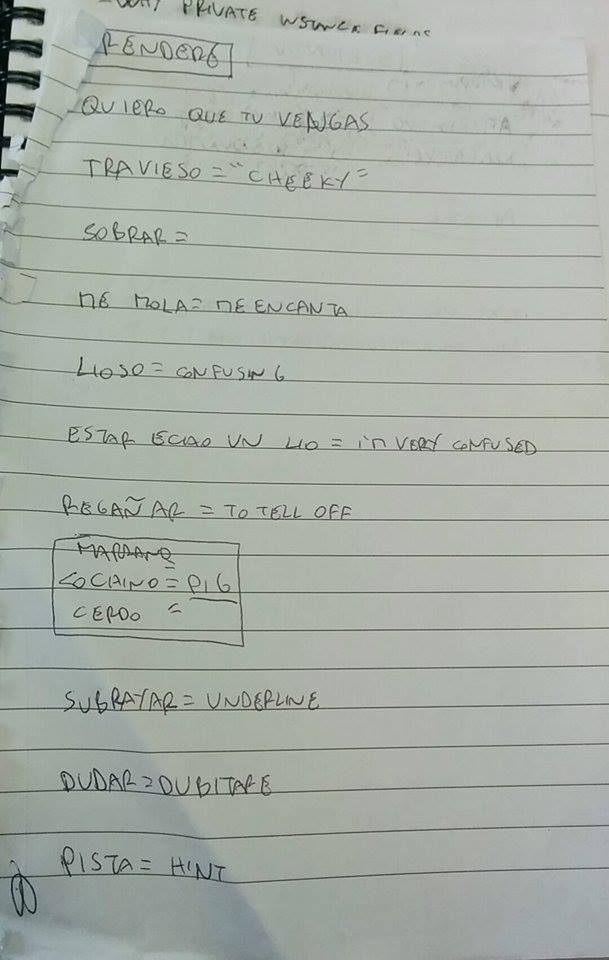 PRIVATE INSTANCE FIELDS
RENDERE
QUIERO QUE TU VENGAS
TRAVIESO = "CHEEKY"
SOBRAR =
ME MOLA = ME ENCANTA
LIOSO = CONFUSING
ESTAR ECHO UN LIO = I'M VERY CONFUSED
REGAÑAR = TO TELL OFF
MARRANO =
COCHINO = PIG
CERDO =
SUBRAYAR = UNDERLINE
DUDAR = DUBITARE
PISTA = HINT